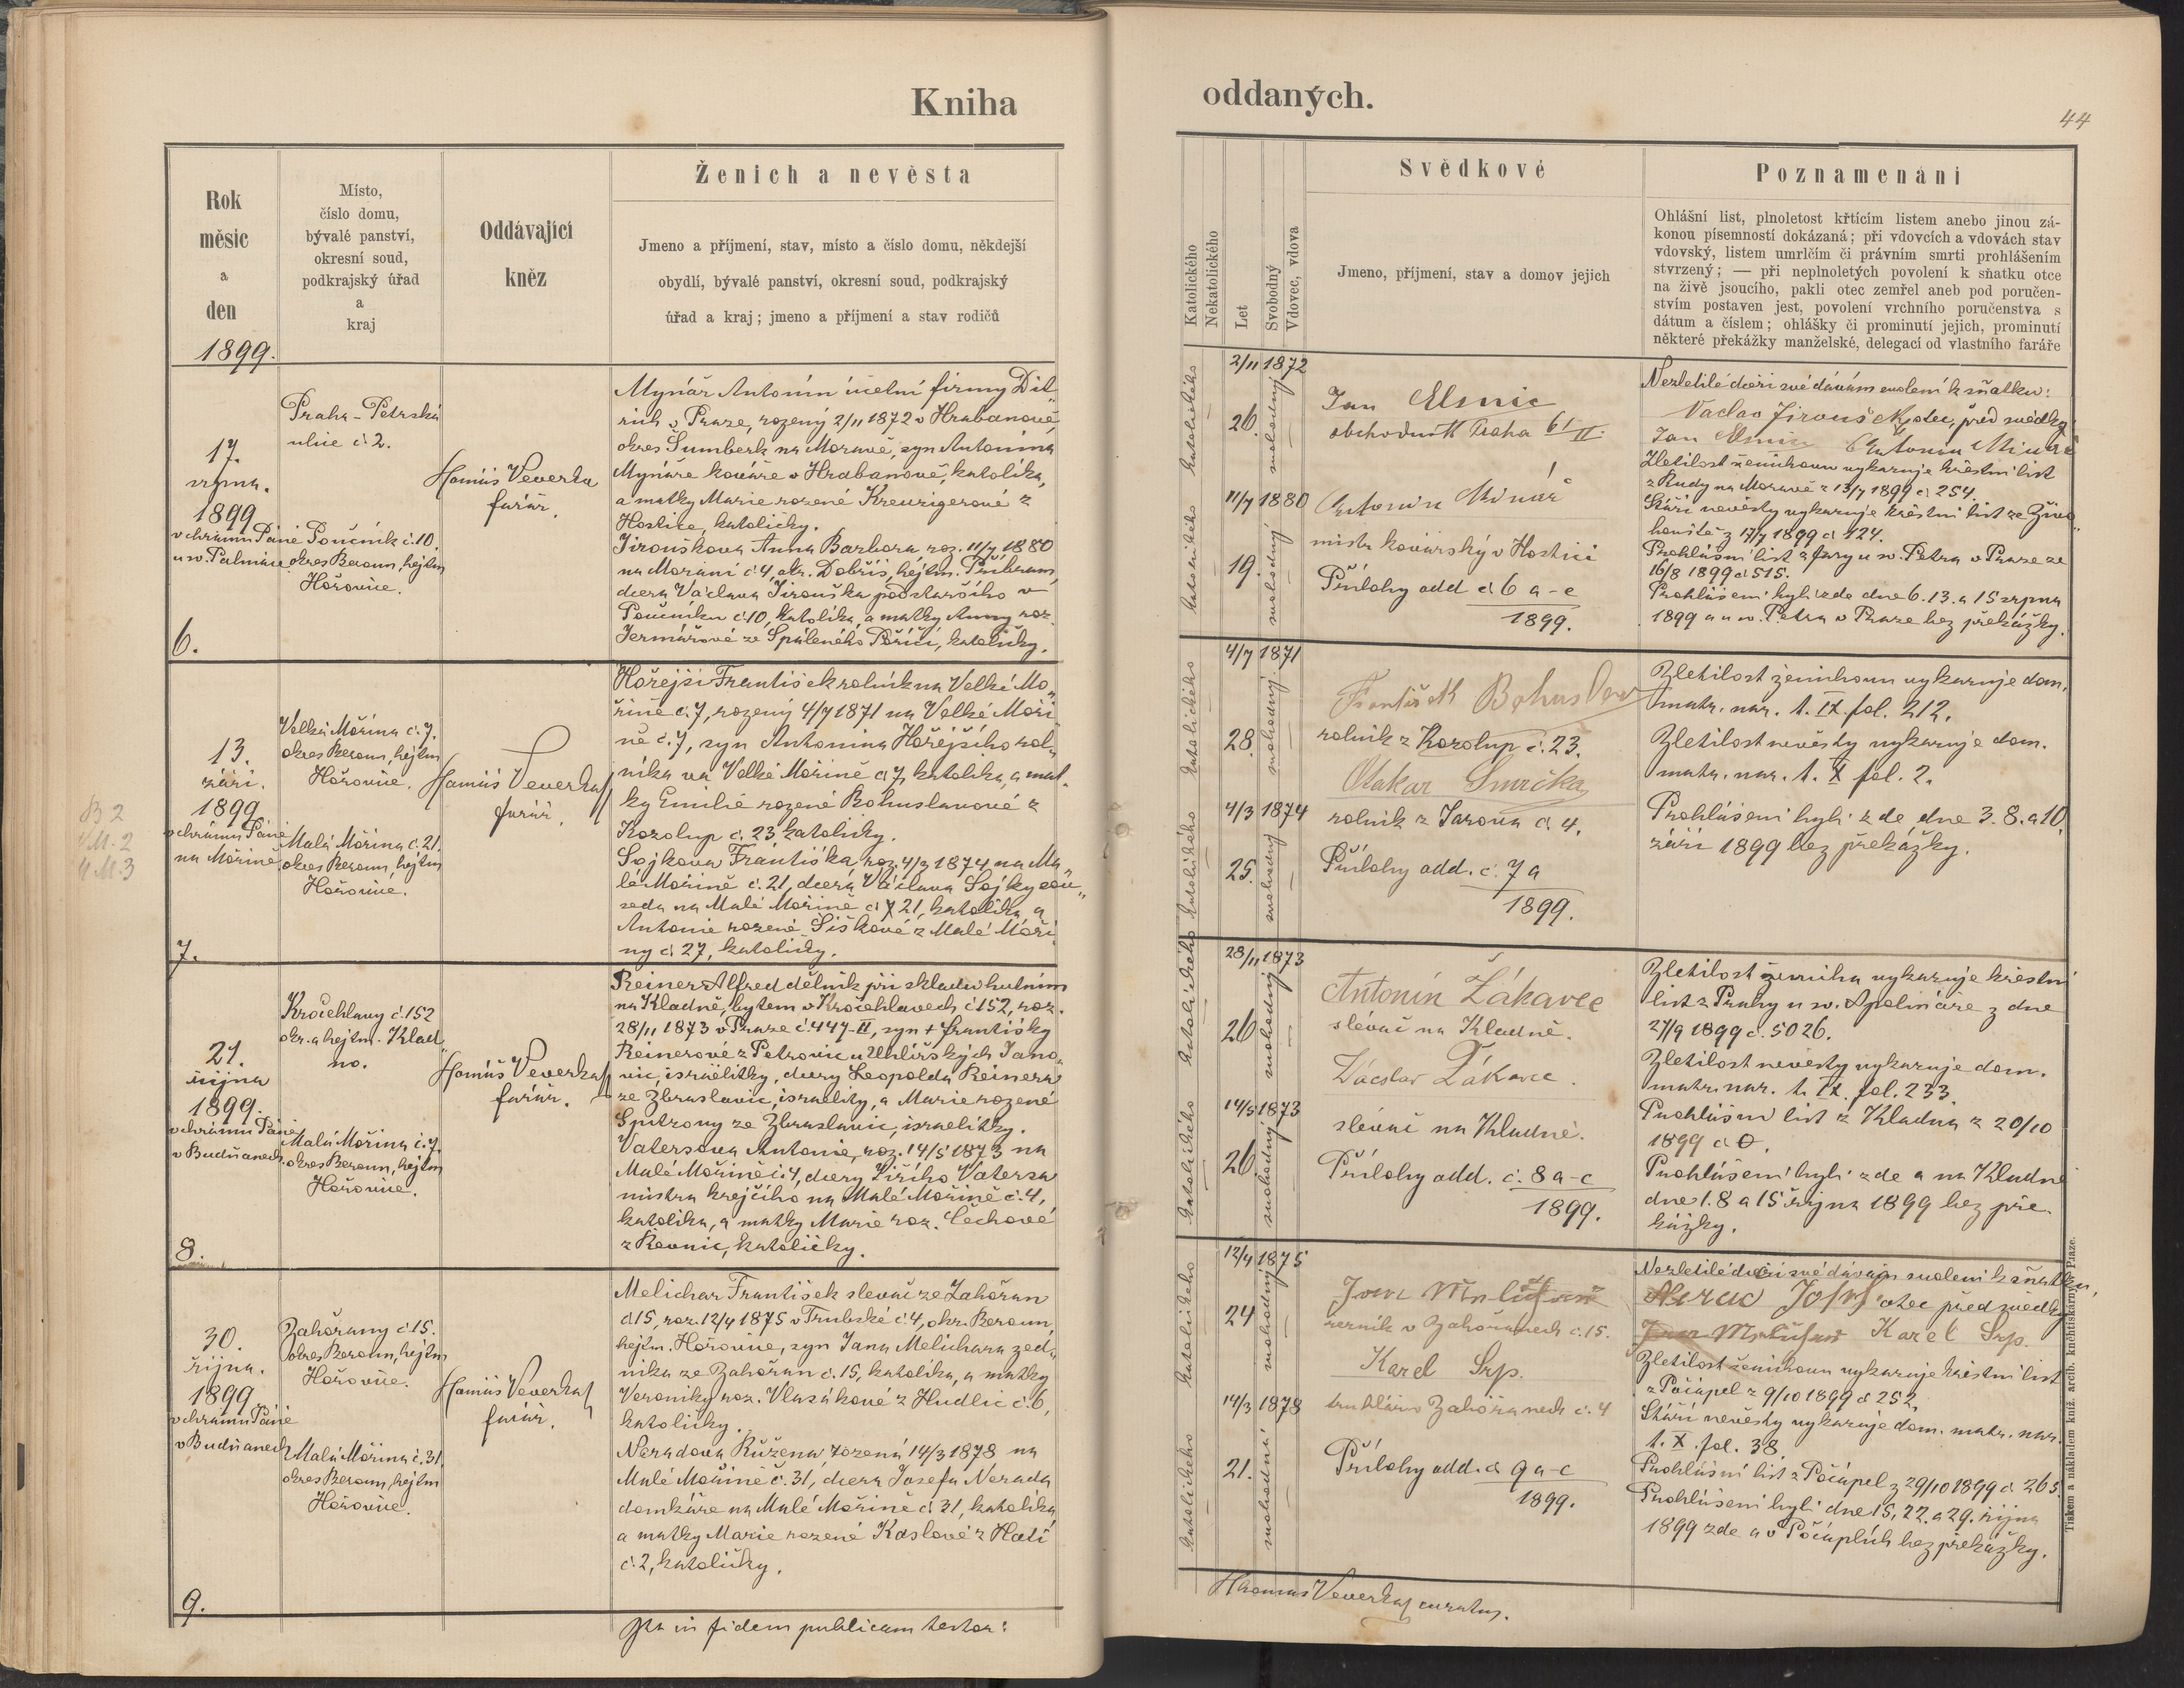 Kniha
Rok
měsíc
a
den
1899.
Místo,
číslo domu,
bývalé panství,
okresní soud,
podkrajský úřad
a
kraj
Oddávající
kněz
Ženich a nevěsta
Jmeno a příjmení, stav, místo a číslo domu, někdejší
obydlí, bývalé panství, okresní soud, podkrajský
úřad a kraj; jmeno a příjmení a stav rodičů
17.
srpna.
1899
v chrámu Páně
u sv. Palmáce
6.
Praha-Petrská
ulice č 2.
Poučník č. 10,
okres Beroun, hejtm
Hořovice.
Tomáš Veverka
farář.
Mynář Antonín účetní firmy Dit„
rich v Praze, rozený 2/11 1872 v Hrabanově
okres Šumberk na Moravě, syn Antonína
Mynáře kováře v Hrabanově, katolíka,
a matky Marie rozené Kreuzigerové z
Hostice, katoličky.
Jiroušková Anna Barbora, roz. 11/7 1880
na Moráni č 4, okr. Dobříš, hejtm. Příbram,
dcera Václava Jirouška podstaršího v
Poučníku č 10, katolíka, a matky Anny roz.
Jermářové ze Spáleného Poříčí, katoličky.
13.
září.
1899
v chrámu Páně
na Mořině
7.
Velká Mořina č. 7.
okres Beroun, hejtm
Hořovice.
Malá Mořina č. 21.
okres Beroun, hejtm
Hořovice.
Tomáš Veverka
farář.
Hořejší František rolník na Velké Mo„
řině č. 7, rozený 4/7 1871 na Velké Moři
ně č. 7, syn Antonína Hořejšího rol„
níka na Velké Mořině č 7, katolíka, a mat„
ky Emilie rozené Bohuslavové z
Kozolup č. 23 katoličky.
Sojkova Františka, roz. 4/3 1874 na Ma„
lé Mořině č. 21, dcera Václava Sojky sou„
seda na Malé Mořině č 21, katolíka, a
Antonie rozené Šiškové z Malé Moři
ny č 27, katoličky.
B 2
4 M. 2
4 M. 3
21.
října
1899.
v chrámu Páně
v Budňanech
8.
Kročehlavy č. 152
okr. a hejtm. Klad„
no.
Malá Mořina č. 4.
okres Beroun, hejtm
Hořovice.
Tomáš Veverka
farář.
Reiner Alfred dělník při skladu hutním
na Kladně, bytem v Kročehlavech č 152, roz.
28/11 1873 v Praze č 447-II, syn + Františky
Reinerové z Petrovic u Uhlířských Jano„
vic, israëlitky, dcery Leopolda Reinera
ze Zbraslavic, israelity, a Marie rozené
Spitzovy ze Zbraslavic, israelitky.
Vatersova Antonie, roz. 14/5 1873 na
Malé Mořině č 4, dcery Jiřího Vatersa
mistra krejčího na Malé Mořině č. 4,
katolíka, a matky Marie roz. Čechové
z Řevnic, katoličky.
30.
října.
1899
v chrámu Páně
v Budňanech
9.
Zahořany č 15.
okres Beroun, hejtm
Hořovice.
Malá Mořina č. 31.
okres Beroun, hejtm
Hořovice.
Tomáš Veverka
farář.
Melichar František slevač ze Zahořan
č 15, roz. 12/4 1875 v Trubské č 4, okr. Beroun,
hejtm. Hořovice, syn Jana Melichara zed„
níka ze Zahořan č. 15, katolíka, a matky
Veroniky roz. Vlasákové z Hudlic č. 6,
katoličky.
Neradova Růžena, rozená 14/3 1878 na
Malé Mořině č. 31, dcera Josefa Nerada
domkáře na Malé Mořině č 31, katolíka
a matky Marie rozené Kaslové z Hatí
č. 2, katoličky.
Ita in fidem publicam testor:
oddaných.
44
Katolického
Nekatolického
Let
Svobodný
Vdovec, vdova
Svědkové
Jmeno, příjmení, stav a domov jejich
Poznamenání
Ohlášní list, plnoletost křtícím listem anebo jinou zá-
konou písemností dokázaná; při vdovcích a vdovách stav
vdovský, listem umrlčím či právním smrti prohlášením
stvrzený; — při neplnoletých povolení k sňatku otce
na živě jsoucího, pakli otec zemřel aneb pod poručen-
stvím postaven jest, povolení vrchního poručenstva s
dátum a číslem; ohlášky či prominutí jejich, prominutí
některé překážky manželské, delegací od vlastního faráře
katolického
2/11 1872
26.
svobodný
katolického
11/7 1880
19.
svobodný
Jan
obchodník Praha 61/II.
Antonín Minář
mistr kovářský v Hostici
Přílohy odd č 6 a-e
1899.
Nezletilé dceři své dávám svolení k sňatku:
Václav Jiroušek, otec, před svědky:
Jan Antonín Minář
Zletilost ženichovu vykazuje křestní list
z Rudy na Moravě z 13/7 1899 č 254.
Stáří nevěsty vykazuje křestní list ze Živo„
houště z 17/7 1899 č 124.
Prohlášní list z fary u sv. Petra v Praze ze
16/8 1899 č 515.
Prohlášeni byli zde dne 6. 13. a 15 srpna
1899 a u sv. Petra v Praze bez překážky.
katolického
4/7 1871
28.
svobodný
katolického
4/3 1874
25.
svobodný
František Bohuslav
rolník z Kozolup č. 23.
Otakar Smrčka
rolník z Jarova č. 4.
Přílohy odd. č. 7 a
1899.
Zletilost ženichovu vykazuje dom.
matr. nar. t. IX. fol. 212.
Zletilost nevěsty vykazuje dom.
matr. nar. t. X fol. 2.
Prohlášeni byli zde dne 3. 8. a 10.
září 1899 bez překážky.
katolického
28/11 1873
26
svobodný
katolického
14/5 1873
26.
svobodný
Antonín Žákavec
slévač na Kladně.
Václav Žákavec.
slévač na Kladně.
Přílohy odd. č. 8 a-c
1899.
Zletilost ženicha vykazuje křestní
list z Prahy u sv. Apolináře z dne
27/9 1899 č. 5026.
Zletilost nevěsty vykazuje dom.
matr. nar. t. IX. fol. 233.
Prohlášní list z Kladna z 20/10
1899 č 0.
Prohlášeni byli zde a na Kladně
dne 1. 8 a 15 října 1899 bez pře„
kážky.
katolického
12/4 1875
24
svobodný
katolického
14/3 1878
21.
svobodná
Jan
řezník v Zahořanech č. 15.
Karel Srp.
truhlář v Zahořanech č. 4
Přílohy odd. č 9 a-c
1899.
Nezletilé dceři své dávám svolení k sňatku,
Nerad Josef otec před svědky
Jan Karel Srp.
Zletilost ženichovu vykazuje křestní list
z Počápel z 9/10 1899 č 252.
Stáří nevěsty vykazuje dom. matr. nar.
t. X. fol. 38.
Prohlášní list z Počápel z 29/10 1899 č. 265.
Prohlášeni byli dne 15, 22. a 29. října
1899 zde a v Počáplích bez překážky.
Thomas Veverka curatus.
Tiskem a nákladem kníž. arcib. knihtiskárny v Praze.